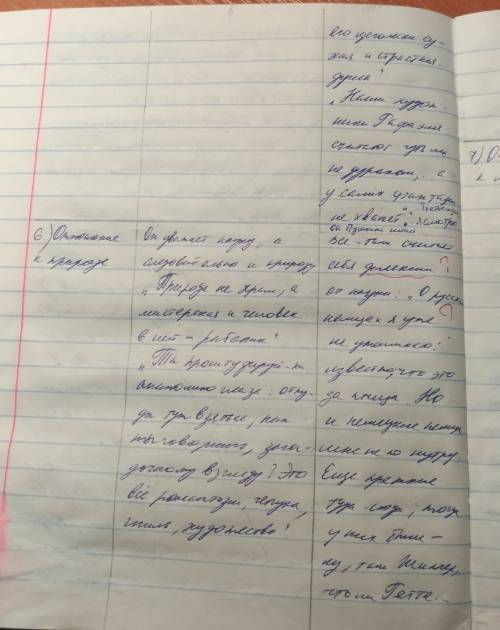 его щегольски су-
хая и страстная
душа"
„Наши худож-
ники Рафаэля
считают чуть ли
не дураком,.. а
у самих фантазии
не хватает"
6) Отношение
к природе
Он уважает науку, а
следовательно и природу
„Природа не храм, а
мастерская и человек
в ней - работник"
„Ты проштудируй-ка
анатомию глаза: отку-
да тут взяться, как
ты говоришь, зага-
дочному взгляду? Это
всё романтизм, чепуха,
гниль, художество"
Все-таки считает
себя далеким ?
от науки: „О русских
немцах я уже
не упоминаю:
известно, что это
за птицы. Но
и немецкие немцы
мне не по нутру.
Еще прежние
туда-сюда; тогда
у них были -
ну, там Шиллер,
что ли Гетте...
7) О
к